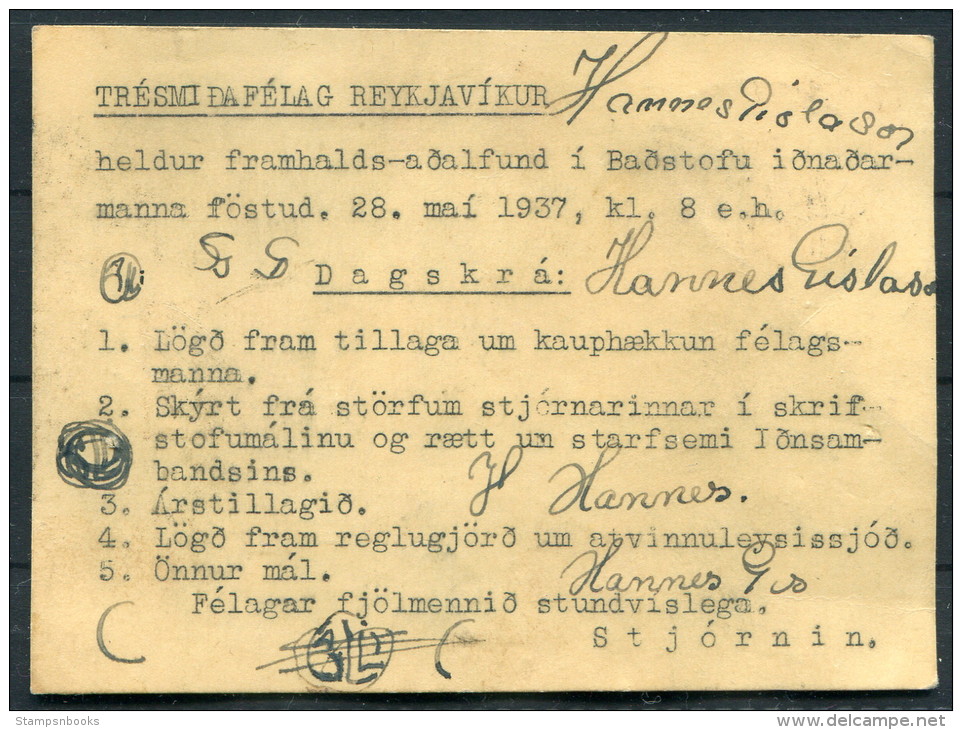 TRÉSMIÐAFÉLAG REYKJAVÍKUR Hannes Gíslason
heldur framhalds-aðalfund í Baðstofu iðnaðar-
manna föstud. 28. maí 1937, kl. 8 e.h.
D a g s k r á: Hannes Gíslaso
1. Lögð fram tillaga um kauphækkun félags-
manna.
2. Skýrt frá störfum stjórnarinnar í skrif-
stofumálinu og rætt um starfsemi Iðnsam-
bandsins.
H Hannes.
3. Árstillagið.
4. Lögð fram reglugjörð um atvinnuleysissjóð.
5. Önnur mál.
Hannes Gís
Félagar fjölmennið stundvíslega.
S t j ó r n i n.
Stampsnbooks
delcampe.net